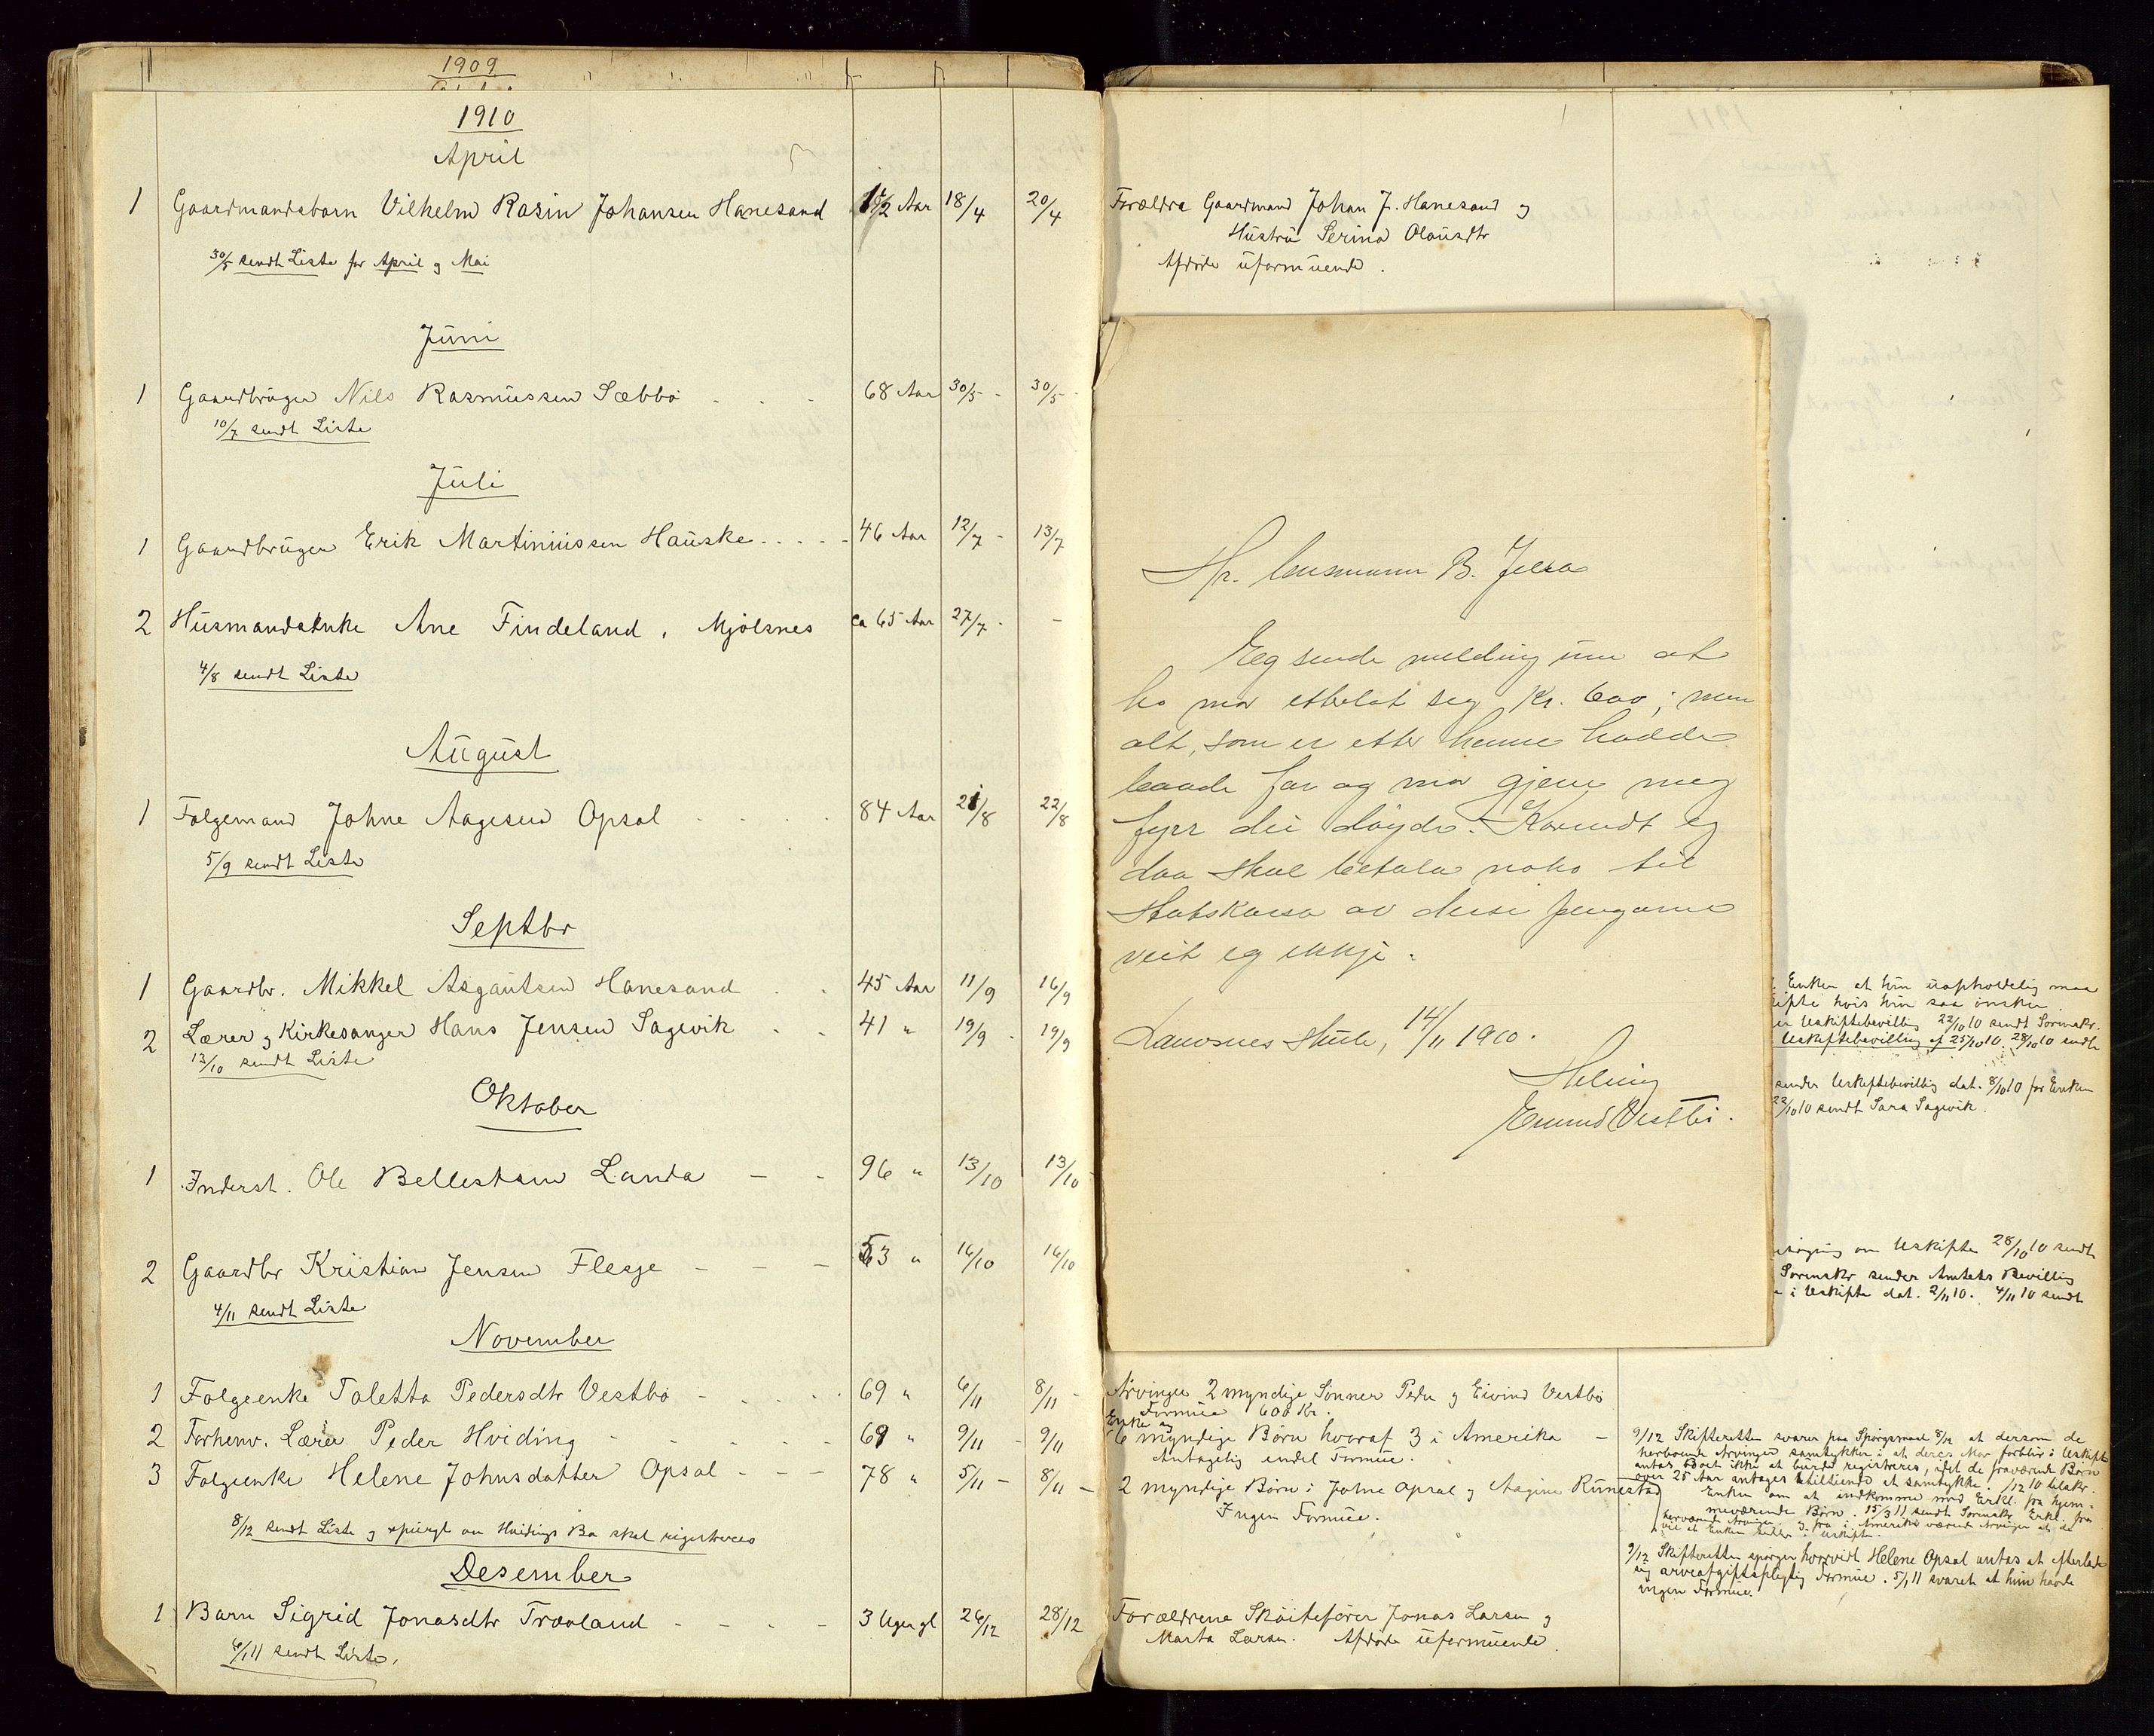 1909
1910
April
1 Gaardmandsbarn Vilhelm Rasin Johansen Hanesand Aar 18/4 20/4
30/5 sendt Liste for April og Mai
Juni
1 Gaardbruger Nils Rasmussen Sæbbø 68 Aar 30/5 - 30/5 -
10/7 sendt Liste
Juli
1 Gaardbruger Erik Martiniussen Hauske . . . . . 46 Aar 12/7 - 13/7
2 Husmandsenke Ane Findeland, Mjølsnes ca 65 Aar 27/7 - -
4/8 sendt Liste
August
1 Folgemand Johne Aagesen Opsal 84 Aar 21/8 22/8
5/9 sendt Liste
Septbr
1 Gaardbr. Mikkel Asgautsen Hanesand 45 Aar 11/9 16/9
2 Lærer og Kirkesanger Hans Jensen Sagevik 41 " 19/9 - 19/9
13/10 sendt Liste
Oktober
1 Inderst. Ole Bellestsen Landa — - 96 " 13/10 13/10
2 Gaardbr Kristian Jensen Flesje - - - 53 " 16/10 16/10
4/11 sendt Liste
November
1 Folgeenke Taletta Pedersdtr Vestbø - 69 " 6/11 8/11 -
2 Forhenv. Lærer Peder Hviding - - - - - 69 " 9/11 - 9/11
3 Folgeenke Helene Johnsdatter Opsal - - - 78 " 5/11 - 8/11 -
8/12 sendt Liste og spurgt om Hvidings Bo skal registreres
Desember
1 Barn Sigrid Jonasdtr Travland - - - - 3 Uger gl 26/12 28/12
6/1 11 sendt Liste.
Forældre Gaardmand Johan J. Hanesand og
Hustru Serina Olausdtr
Afdøde uformuende.
Hr. lensmann B. Jelsa
Eg sende melding um at
ho mor etterlet seg Kr. 600; men
alt, som er etter henne hadde
baade far og mor gjeve meg
fyrr dei døydo. Korvidt eg
daa skal betala noko til
Statskassa av desse pengarne
veit eg ikkje.
Landsnes Skule, 14/11 1910.
Helsing
Eivind Vestbø.
Enken at hun uopholdelig maa
skifte hvis hun saa ønsker
Uskiftebevilling 22/10 10 sendt Sorenskr.
Uskiftebevilling af 25/10 10. 28/10 10 sendt
sender Uskiftebevillig dat. 8/10 10 for Enken
22/10 10 sendt Sara Sagevik.
om Uskifte 28/10 10 sendt
Sorenskr sender Amtets Bevillig
i Uskifte dat. 2/11 10. 4/11 10 sendt
Arvinger 2 myndige Sønner Peder og Eivind Vestbø
Formue 600 Kr.
Enke og
6 myndige Børn hvoraf 3 i Amerika —
Antagelig endel Formue.
2 myndige Børn: Johne Opsal og Aagine Runestad
Ingen Formue.
9/12 Skifteretten svarer paa Spørgsmaal 8/12 at dersom de
herboende Arvinger samtykker i at deres Mor forblir i Uskifte
antas Boet ikke at burde registreres, idet de fraværende Børn
over 25 Aar antages stiltiende at samtykke. /12 10 tilskr.
Enken om at indkomme med Erkl. fra hjem-
meværende Børn. 15/3 11 sendt Sorenskr Erkl. fra
herværende Arvinger og fra i Amerika værende Arvinger at de
vil at Enken sidder i Uskifte.
9/12 Skifteretten spørger hvorvidt Helene Opsal antas at efterlade
sig arveafgiftspligtig Formue. 5/1 11 svaret at hun havde
ingen Formue.
Forældrene Skøitefører Jonas Larsen og
Marta Larsen. Afdøde uformuende.